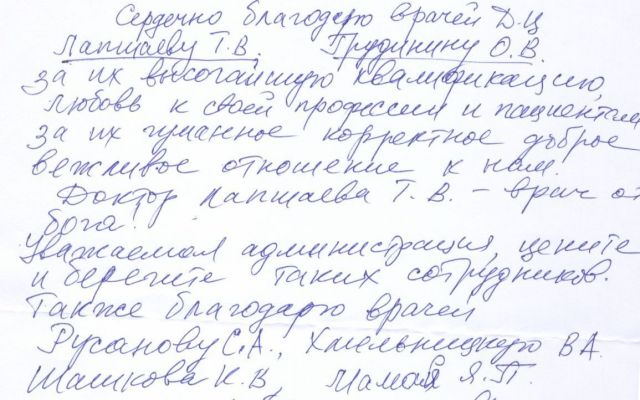 Сердечно благодарю врачей Д.Ц
Лапшаеву Т.В. Грудинину О.В.
за их высочайшую квалификацию,
любовь к своей профессии и пациентам,
за их гуманное корректное доброе
вежливое отношение к нам.
Доктор Лапшаева Т. В. – врач от
бога!
Уважаемая администрация, цените
и берегите таких сотрудников.
Также благодарю врачей
Русанову С.А., Хмельницкую В А.
Шашкова К.В, Мамай Я.П.